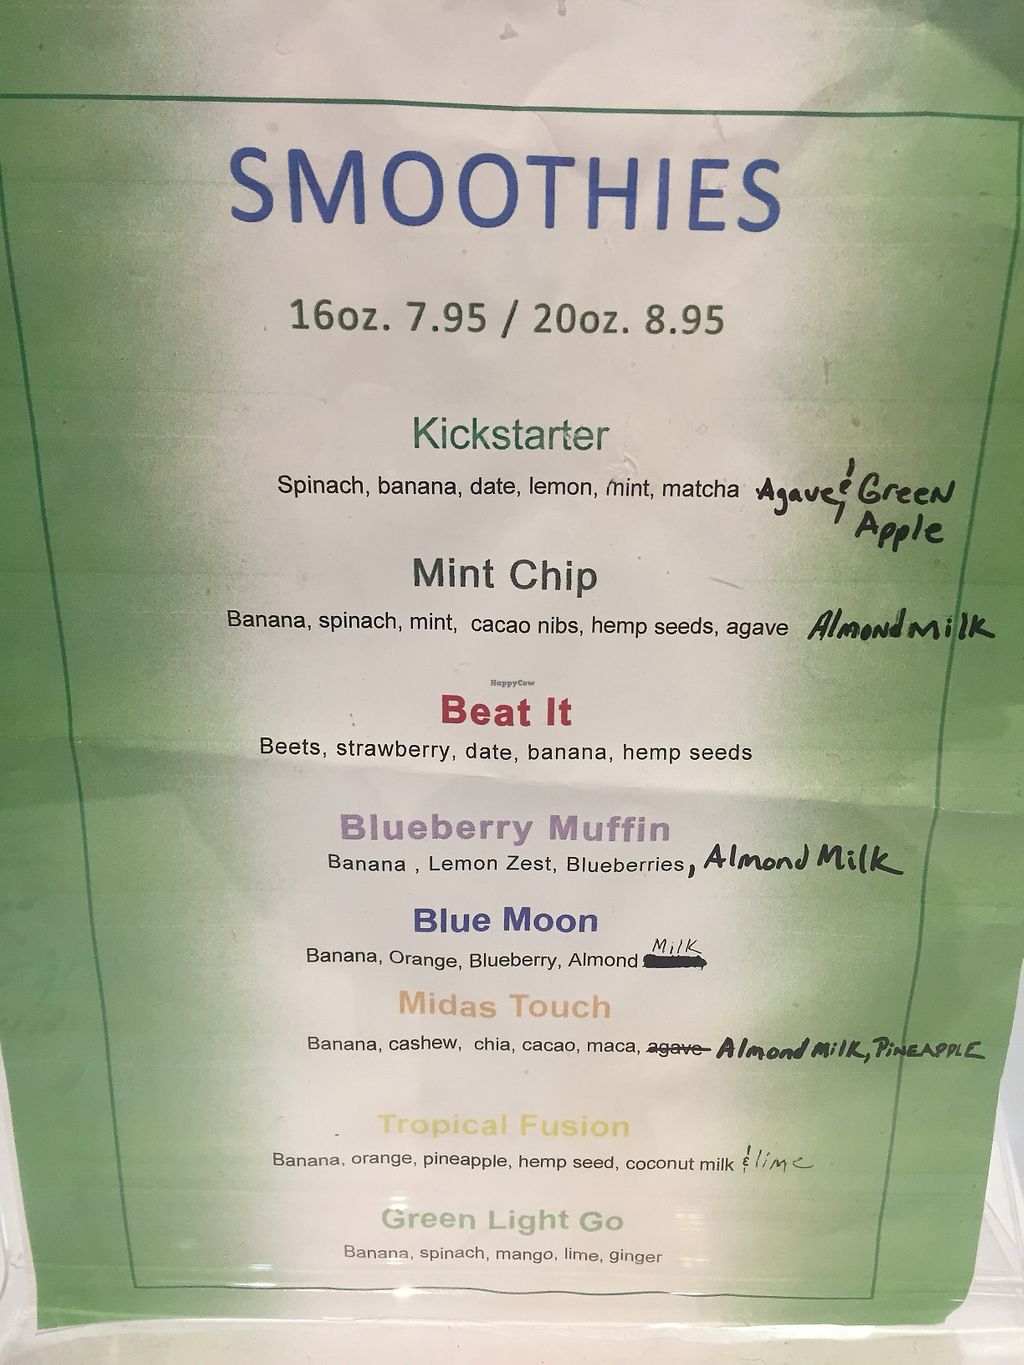 SMOOTHIES
16oz. 7.95 / 20oz. 8.95
Kickstarter
Spinach, banana, date, lemon, mint, matcha Agave & Green
Apple
Mint Chip
Banana, spinach, mint, cacao nibs, hemp seeds, agave Almond Milk
HappyCow
Beat It
Beets, strawberry, date, banana, hemp seeds
Blueberry Muffin
Banana , Lemon Zest, Blueberries, Almond Milk
Blue Moon
Banana, Orange, Blueberry, Almond Milk
Midas Touch
Banana, cashew, chia, cacao, maca, agave Almond Milk, PINEAPPLE
Tropical Fusion
Banana, orange, pineapple, hemp seed, coconut milk & lime
Green Light Go
Banana, spinach, mango, lime, ginger